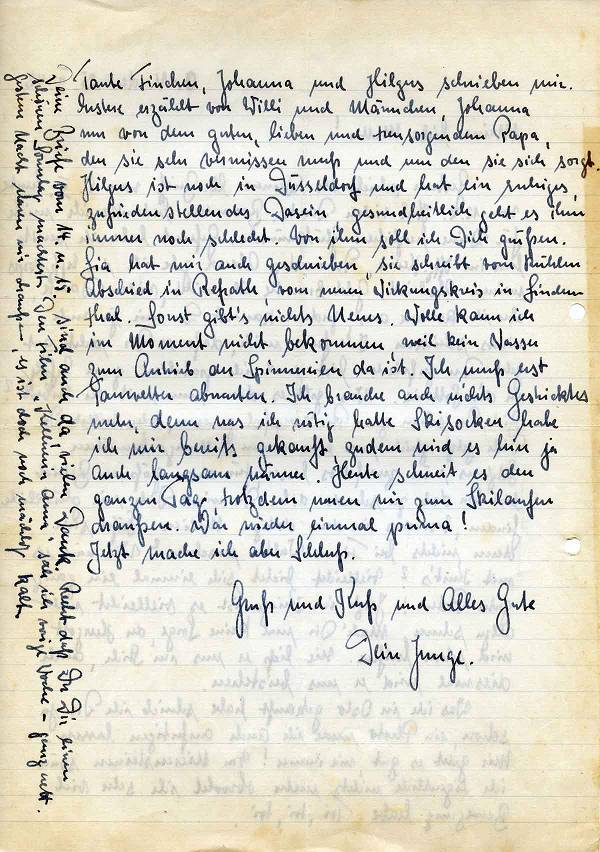 Tante Finchen, Johanna und Hilgers schrieben mir.
Erstere erzählt von Willi und Männchen, Johanna
nur von dem guten, lieben und treusorgenden Papa,
den sie sehr vermissen muß und um den sie sich sorgt.
Hilgers ist noch in Düsseldorf und hat ein ruhiges,
zufriedenstellendes Dasein, gesundheitlich geht es ihm
immer noch schlecht. Von ihm soll ich Dich grüßen.
hat mir auch geschrieben, sie schreibt vom kühlen
Abschied in Refrath, vom neuen Wirkungskreis in Linden-
thal. Sonst gibt's nichts Neues. Wolle kann ich
im Moment nicht bekommen weil kein Wasser
zum Antrieb der Spinnereien da ist. Ich muß erst
Tauwetter abwarten. Ich brauche auch nichts Gestricktes
mehr, denn was ich nötig hatte Skisocken habe
ich mir bereits gekauft, zudem wird es hier ja
auch langsam wärmer. Heute schneit es den
ganzen Tag, trotzdem waren wir zum Skilaufen
draußen. War wieder einmal prima!
Jetzt mache ich aber Schluß.
Gruß und Kuß und Alles Gute
Dein Junge.
Deine Briefe vom 14. u. 15. sind auch da vielen Dank. Recht daß Du Dir einen
schönen Sonntag machtest. Den Film sah ich vorige Woche - ganz nett.
Gestern Nacht waren wir draußen, es ist doch noch mächtig kalt.